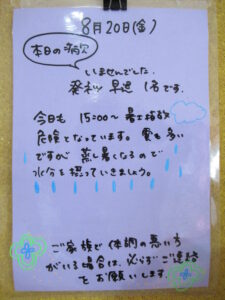 8月20日(金)
本日の病欠
いませんでした。
発熱 早退 1名です。
今日も 15:00〜 暑さ指数
危険となっています。雲も多い
ですが 蒸し暑くなるので
水分を摂っていきましょう。
ご家族で 体調の悪い方
がいる場合は、必ずご連絡
をお願いします。